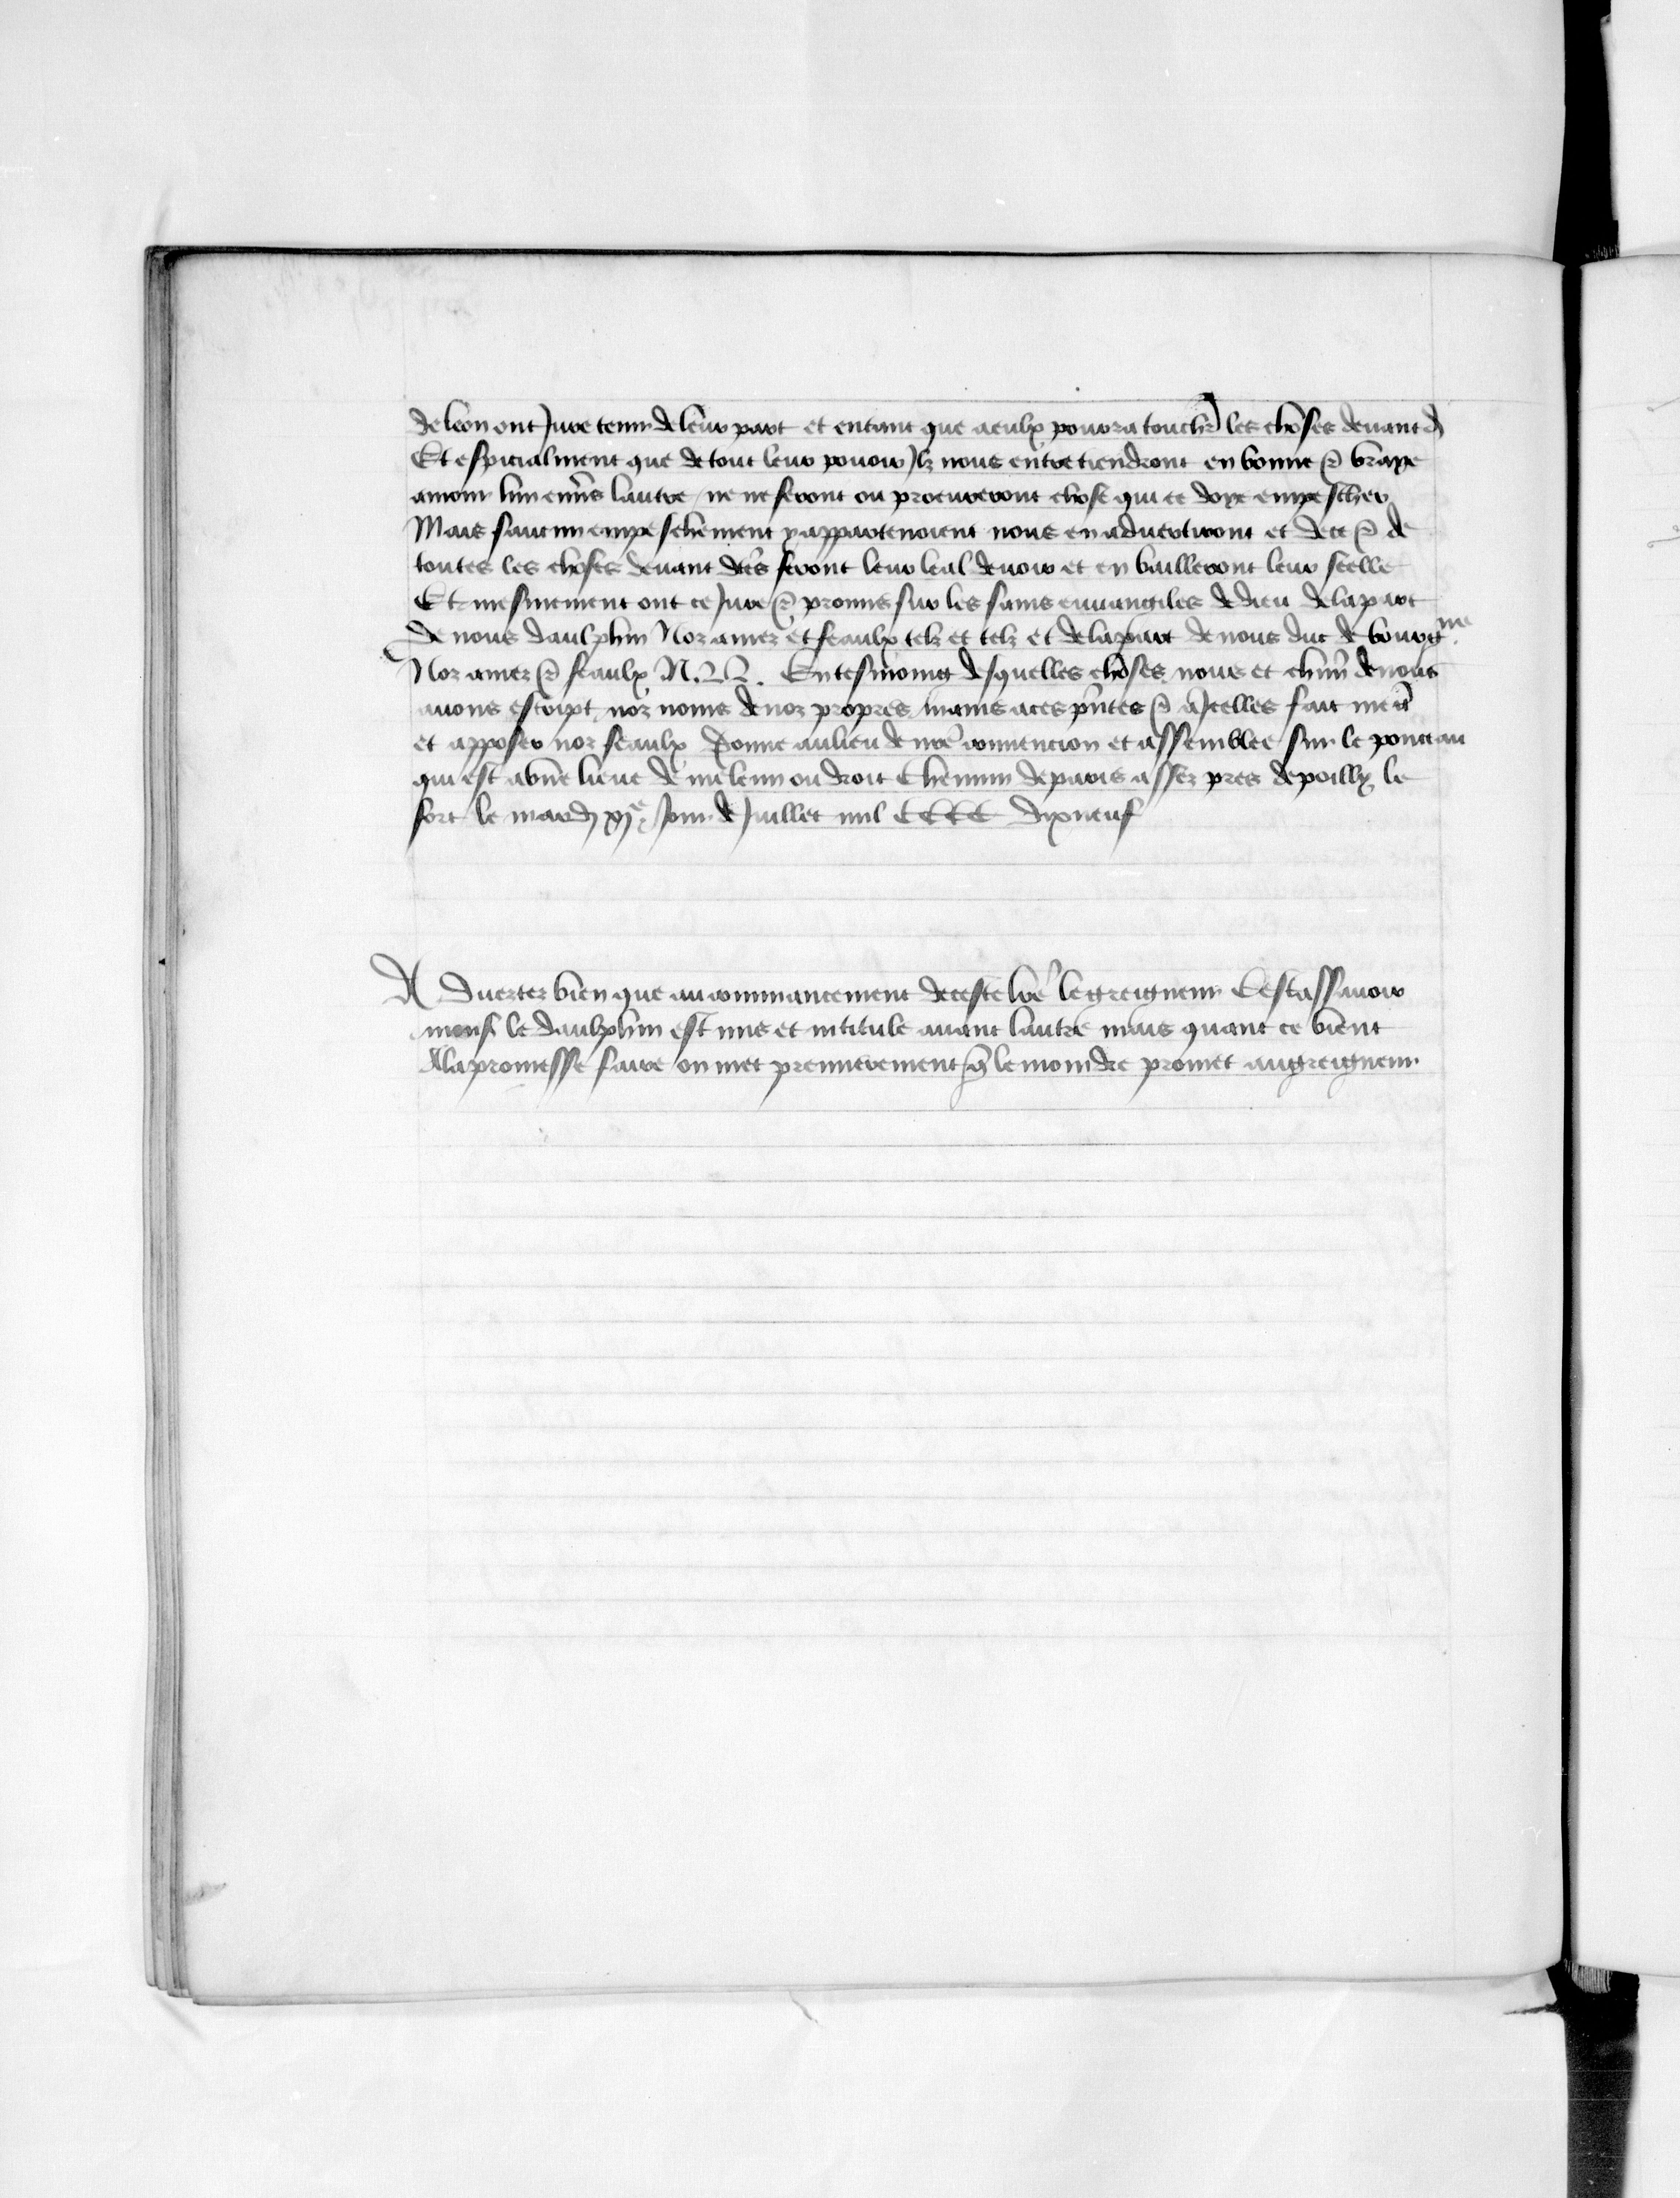 de leon ont Jure tenir de leur part et entant que a eulx pourra touchr̃ les choses deuant d̃
Et especialment que de tout leur pouoir Jlz nous entretiendront en bonne & vraye
amour lun enũs lautre / ne ne feront ou procureront chose qui ce doye empescher
Mais saucun empeschement y appartenoient nous en aduertiront et de ce & de
toutes les choses deuant dc̃es feront leur leal deuoir et en bailleront leur scelle
Et mesmement ont ce Jure & promis sur les sains euuangiles de dieu de la part
de nous daulphin Noz amez et feaulx telz et telz et de la part de nous duc de bourgne
Noz amez & feaulx N. En tesmoing desquelles choses nous et chũn de nous
auons escript noz noms de noz propres mains a ces pñtes & a Jcelles fait mectr̃
et apposer noz seaulx Donne au lieu de nr̃e conuencion et assemblee sur le ponceau
qui est a vne lieue de meleun ou droit chemin de paris assez pres de poilly le
fort le mardj xje Jour de Juillet mil CCCC dixneuf
Aduertez bien que au commancement de ceste lr̃e le greigneur Cestassauoir
mons̃ le daulphin est mis et intitule auant lautre mais quant ce vient
A la promesse faire on met premierement q̃ le moindre promet au greigneur